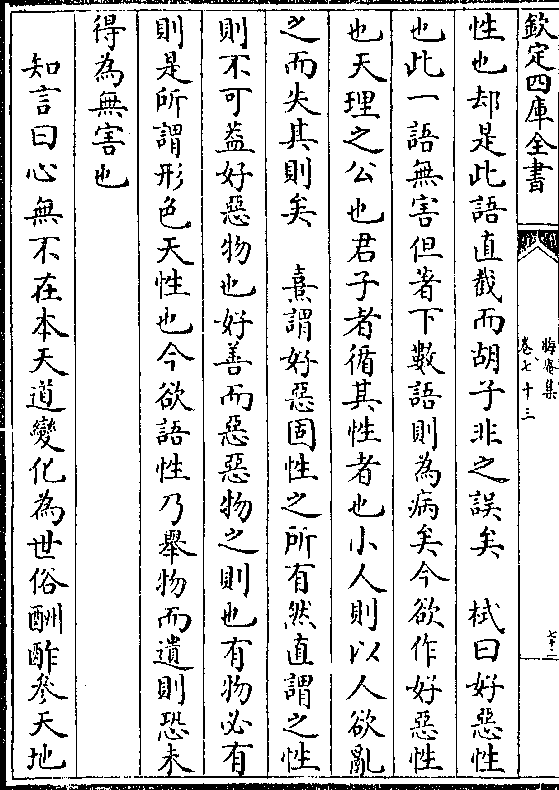 欽定四庫全書
晦庵集
卷七十三
七十二
性也却是此語直截而胡子非之誤矣　栻曰好惡性
也此一語無害但著下數語則為病矣今欲作好惡性
也天理之公也君子者循其性者也小人則以人欲亂
之而失其則矣　熹謂好惡固性之所有然直謂之性
則不可葢好惡物也好善而惡惡物之則也有物必有
則是所謂形色天性也今欲語性乃舉物而遺則恐未
得為無害也
知言曰心無不在本天道變化為世俗酬酢參天地